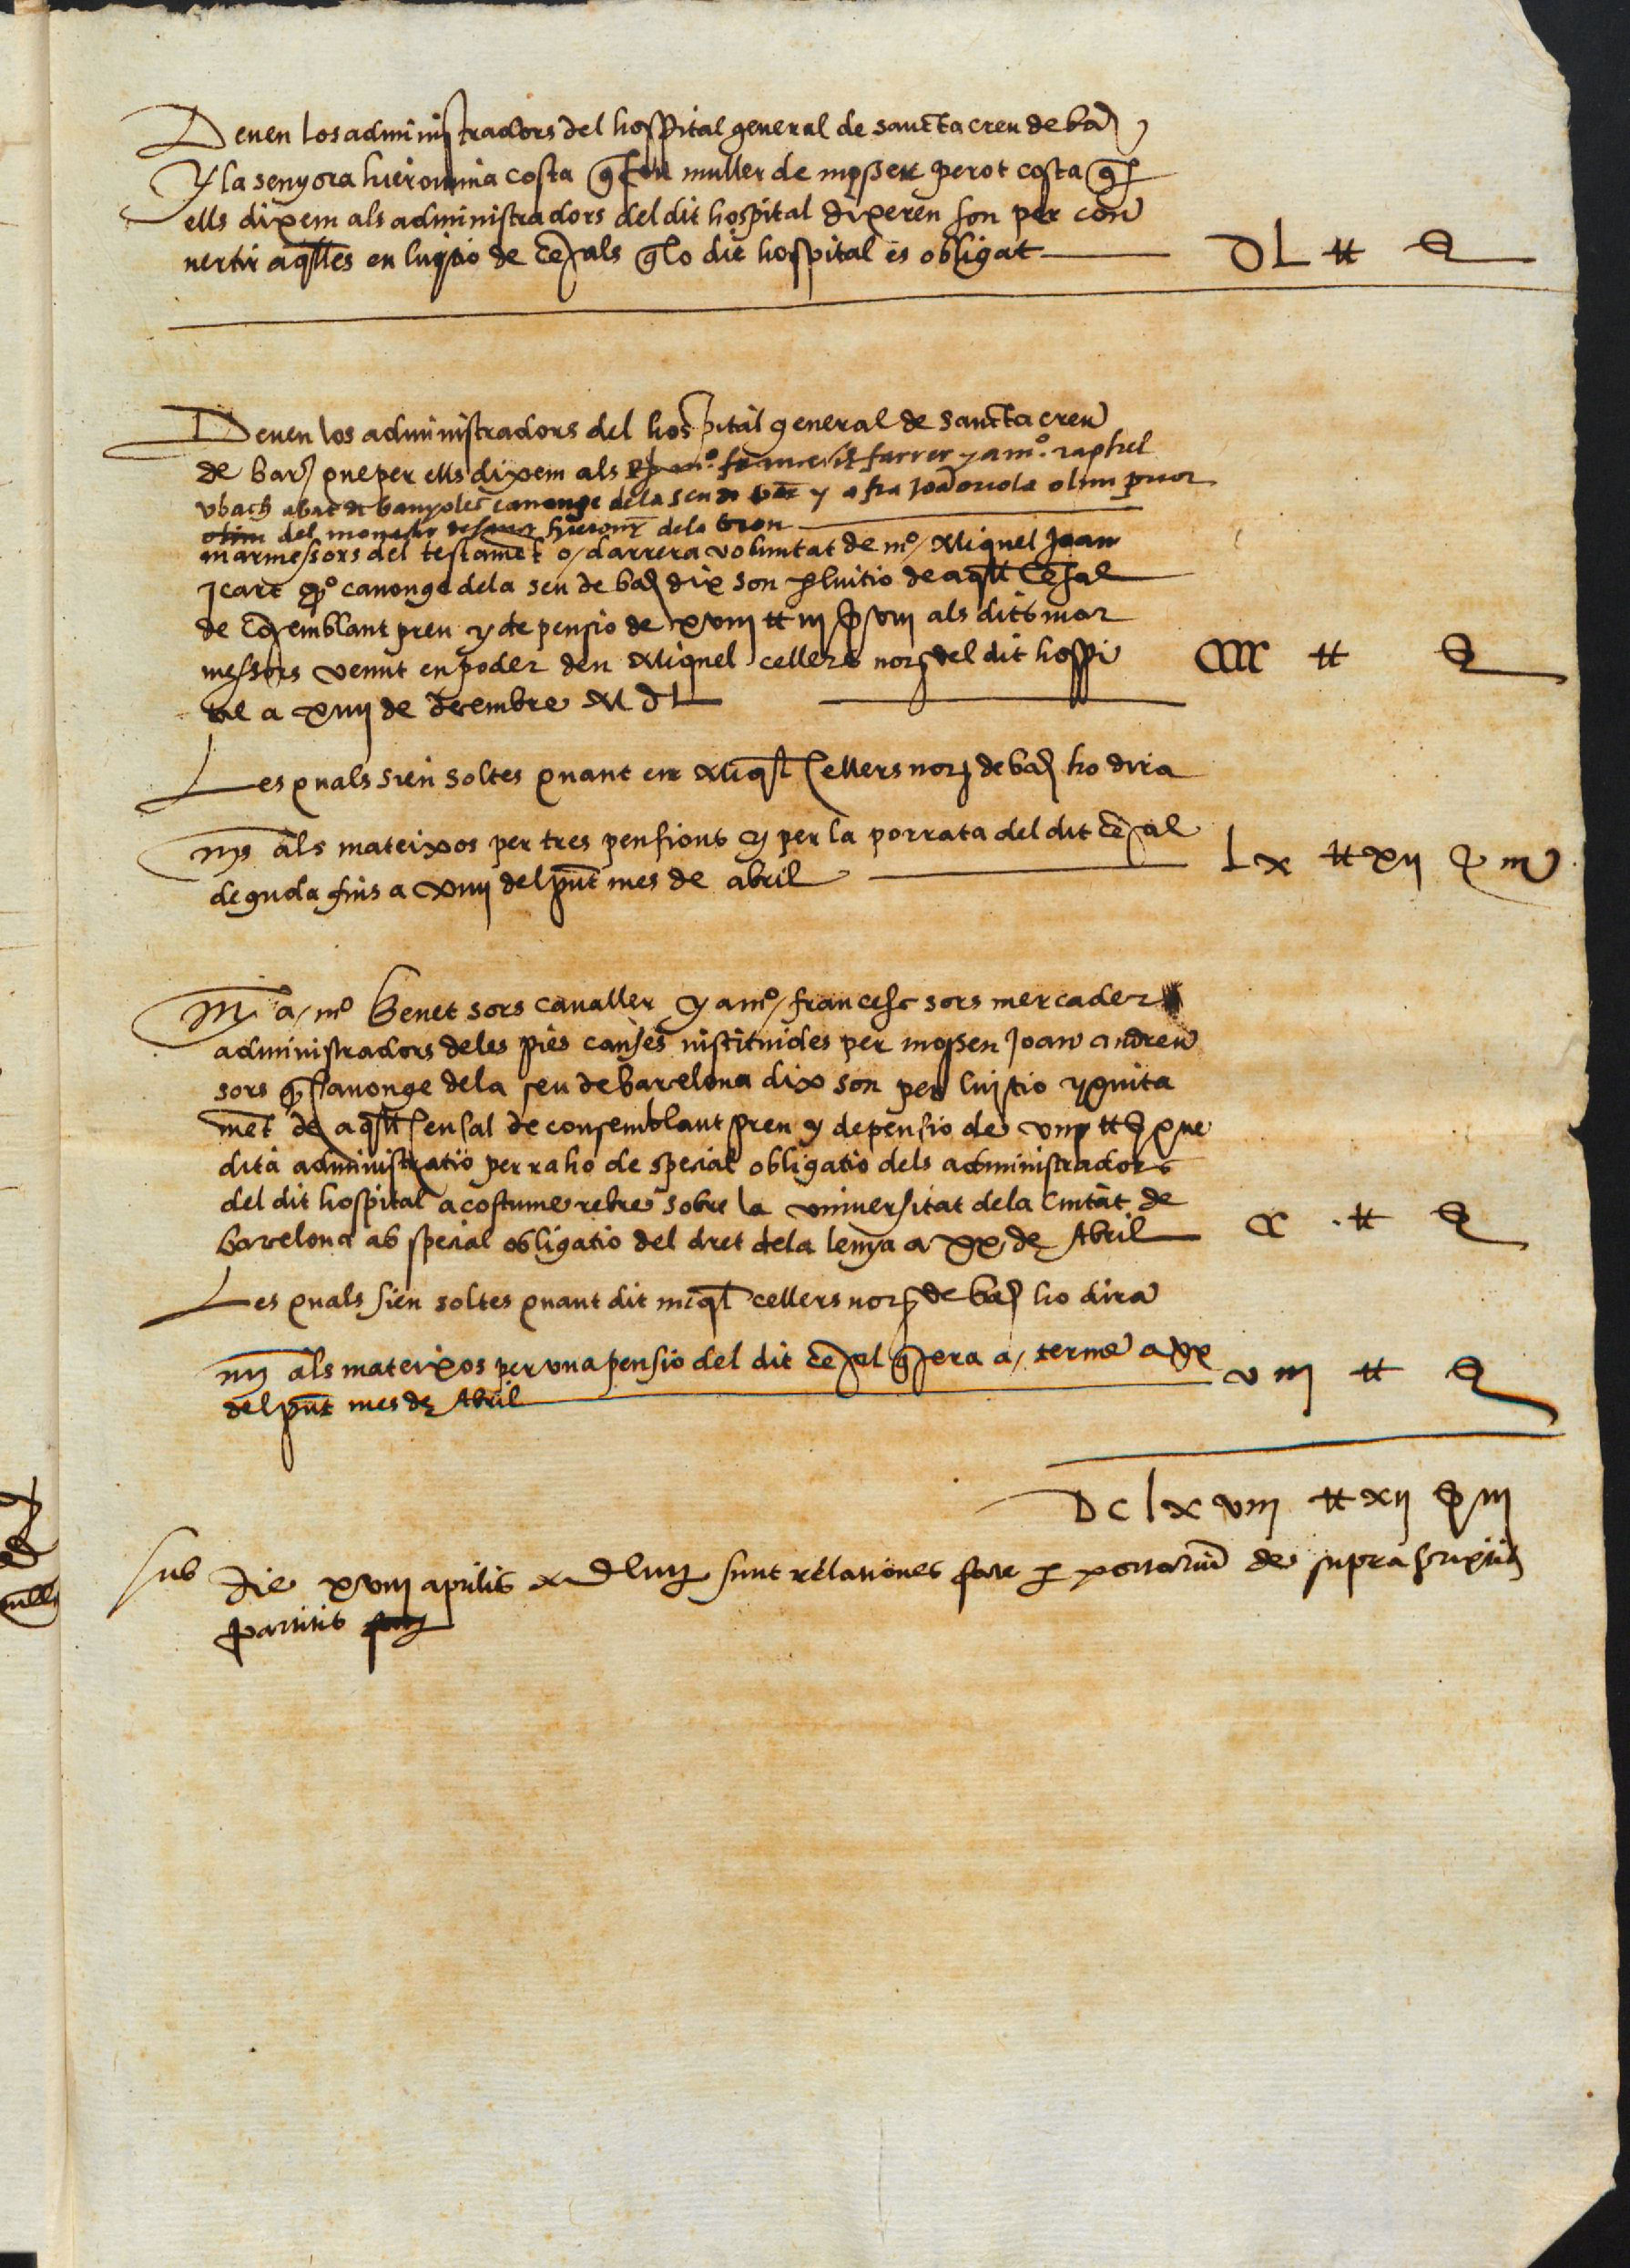 Deuen los administradors del hospital general de sancta creu de bar
Y la senyora hieronima costa muller de mossen perot costa q
ells dixem als administradors del dit hospital dixeren son per con
uertir aqlles en luysio de cesals q lo dit hospital es obligat DL tt s
Deuen los administradors del hospital general de sancta creu
de bar que per ells dixem als francesch farrer y a mº raphel
vbach abat de banyoles canonge de la seu de bar y a fra Joa oriola olim prior
olim del hieronz dela
marmessors del testamet o/ darrera voluntat de mº/ Miquel Joan
Icart qº canonge dela seu de bar dix son p luitio de aqll cesal
de cosemblant preu y de pensio de xviii tt iii s viii als dits mar
messors venut en poder den Miquel cellers nor del dit hospi
tal a xviiii de decembre MDL CCC tt s
Les quals sien soltes quant en Miql Cellers nor de bar ho dira
mes als mateixos per tres pensions y per la porrata del dit cesal
deguda fins a xviiii del pnt mes de abril Lx tt xii s iii
Mes a/ mº benet sors caualler y a mº/ francesc sors mercader
administradors deles pies causes instituides per mossen Joan andreu
sors q Canonge dela seu de barcelona dix son per luistio y quita
met de aqll censal de consemblant preu y de pensio de viii tt s que
dita administratio per raho de special obligatio dels administradors
del dit hospital acostume rebre sobre la vniuersitat dela Ciutat de
barcelona ab special obligatio del dret dela lenya a xx de Abril C tt s
Les quals sien soltes quant dit miql cellers nor de bar ho dira
mes als mateixos per vna pensio del dit cesal q era a/ terme a xx
del pnt mes de Abril viii tt s
DCLxviii tt xii s iii
sub die xviii aprilis MDLiiii sunt relationes facte p portarium de supra scriptis
partitis